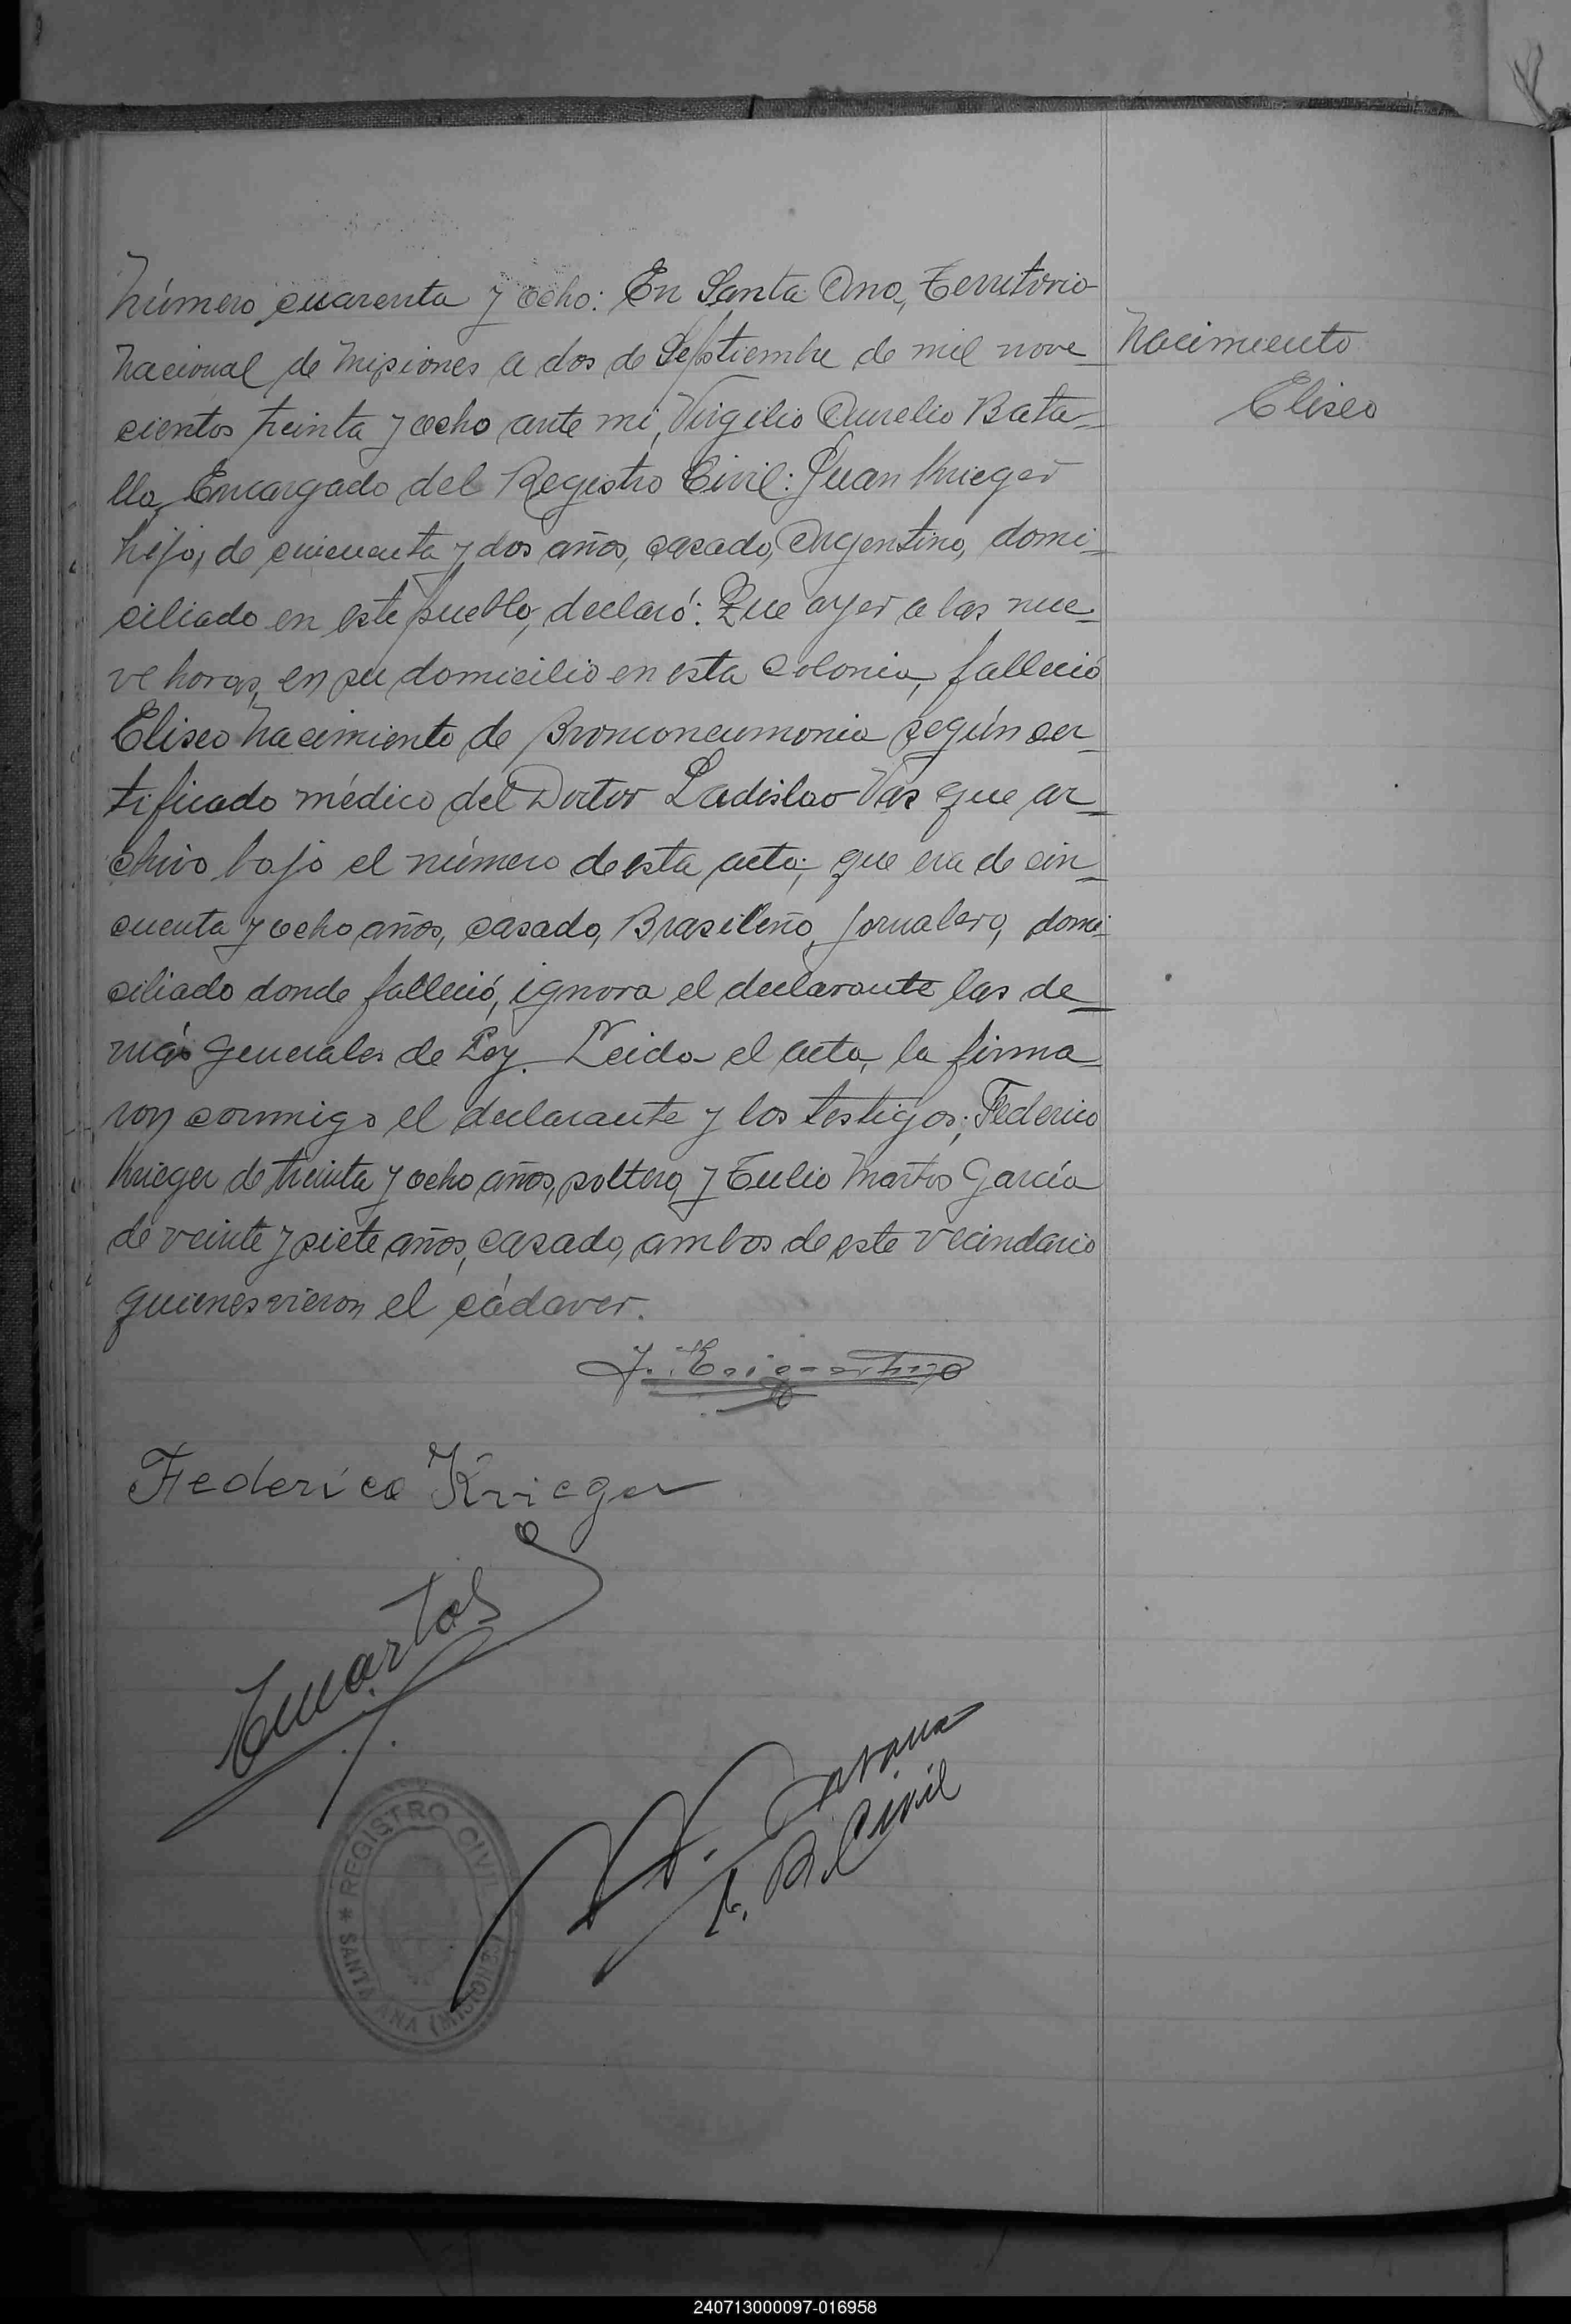 Número cuarenta y ocho: En Santa Ana, Territorio
Nacional de Misiones a dos de Septiembre de mil nove
Nacimiento
Eliseo
cientos treinta y ocho ante mi, Virgilio Aurelio Bata-
lla, Encargado del Registro Civil: Juan Krieger
hijo, de cincuenta y dos años, casado, Argentino, domi-
ciliado en este pueblo, declaró: Que ayer a las nue-
ve horas, en su domicilio en esta Colonia, falleció
Eliseo Nacimiento de Bronconeumonia según cer-
tificado médico del Doctor Ladislao Vas que ar-
chivo bajo el número de esta acta; que era de cin-
cuenta y ocho años, casado, Brasileño, jornalero, domi
ciliado donde falleció, ignora el declarante las de-
más generales de Ley. Leida el acta, la firma-
ron conmigo el declarante y los testigos; Federico
Krieger de treinta y ocho años, soltero y Tulio Martos García
de veinte y siete años, casado, ambos de este vecindario
quienes vieron el cádaver.
Federico Krieger
TMartos
R. Civil
* REGISTRO CIVIL
SANTA ANA (MISIONES)
240713000097-016958